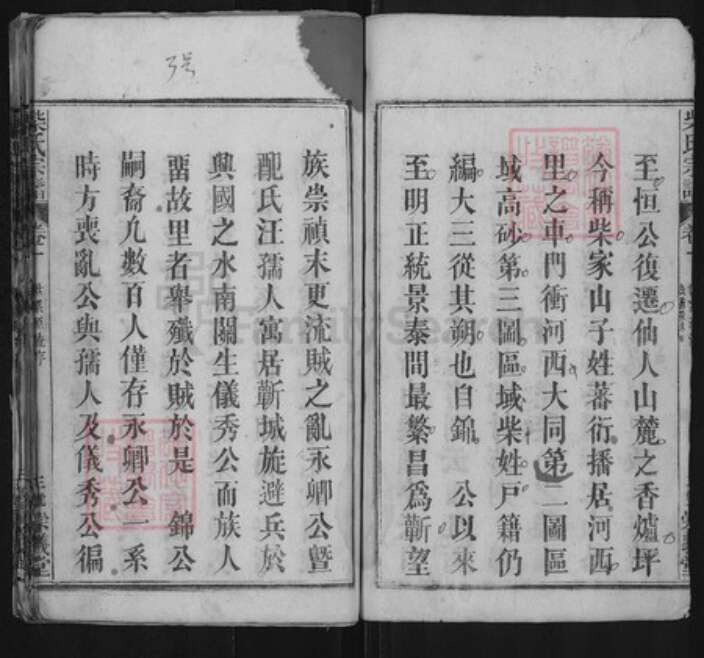 至恒公復遷仙人山麓之香爐坪
今稱柴家山子姓蕃衍播居河西
里之車門衝河西大同第二圖區
域高砂第三圖區域柴姓戶籍仍
編大三從其朔也自錦 公以來
至明正統景泰間最繁昌爲蘄望
族崇禎末更流賊之亂永卿公暨
配氏汪孺人寓居蘄城旋避兵於
興國之水南關生儀秀公而族人
畱故里者舉殲於賊於是 錦公
嗣裔凡數百人僅存永卿公一系
時方喪亂公與孺人及儀秀公徧
柴氏宗譜
卷一
3号
FamilySearch